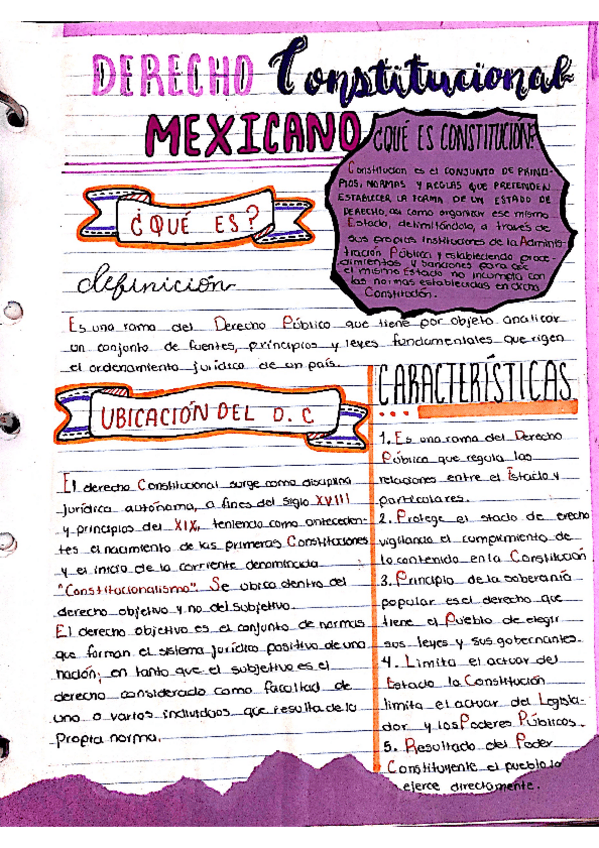 DERECHO Constitucional
MEXICANO
¿QUÉ ES CONSTITUCION?
Constitucion es el CONJUNTO DE PRINCI-
PIOS, NORMAS Y REGLAS QUE PRETENDEN
ESTABLECER LA FORMA DE UN ESTADO DE
DERECHO, así como organizar ese mismo
Estado, delimitándolo, a través de
sus propias Instituciones de la Adminis-
tración Pública y estableciendo proce-
dimientos y sanciones para que
el mismo Estado no incumpla con
las normas establecidas en dicha
Constitución.
¿QUÉ ES?
definición
Es una rama del Derecho Público que tiene por objeto analizar
un conjunto de fuentes, principios y leyes fundamentales que rigen
el ordenamiento jurídico de un país.
UBICACIÓN DEL D. C
El derecho Constitucional surge como disciplina
jurídica autónoma, a fines del siglo XVIII
y principios del XIX, teniendo como anteceden-
tes el nacimiento de las primeras Constituciones
y el inicio de la corriente denominada
"Constitucionalismo". Se ubica dentro del
derecho objetivo y no del subjetivo.
El derecho objetivo es el conjunto de normas
que forman el sistema jurídico positivo de una
nación, en tanto que el subjetivo es el
derecho considerado como facultad de
uno o varios individuos que resulta de la
propia norma.
CARACTERÍSTICAS
1. Es una rama del Derecho
Público que regula las
relaciones entre el Estado y
particulares.
2. Protege el stado de erecho
vigilando el cumplimiento de
lo contenido en la Constitución
3. Principio de la soberanía
popular es el derecho que
tiene el Pueblo de elegir
sus leyes y sus gobernantes.
4. Limita el actuar del
Estado la Constitución
limita el actuar del Legisla-
dor y los Poderes Públicos.
5. Resultado del Poder
Constituyente el pueblo lo
ejerce directamente.